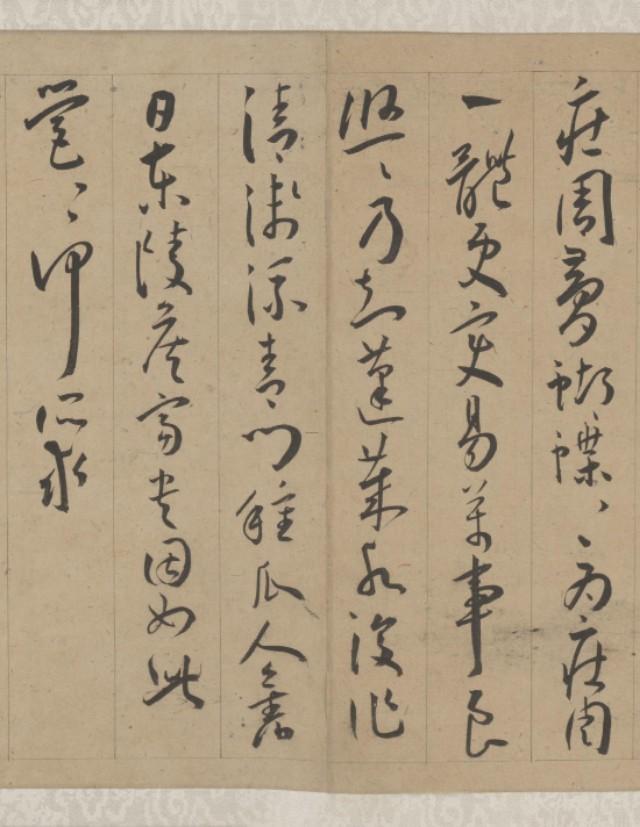 莊周夢蝴蝶〻〻為莊周
一體更變易萬事良
悠〻乃知蓬萊水復作
清淺流青門種瓜人舊
日東陵侯富貴固如此
營〻何所求